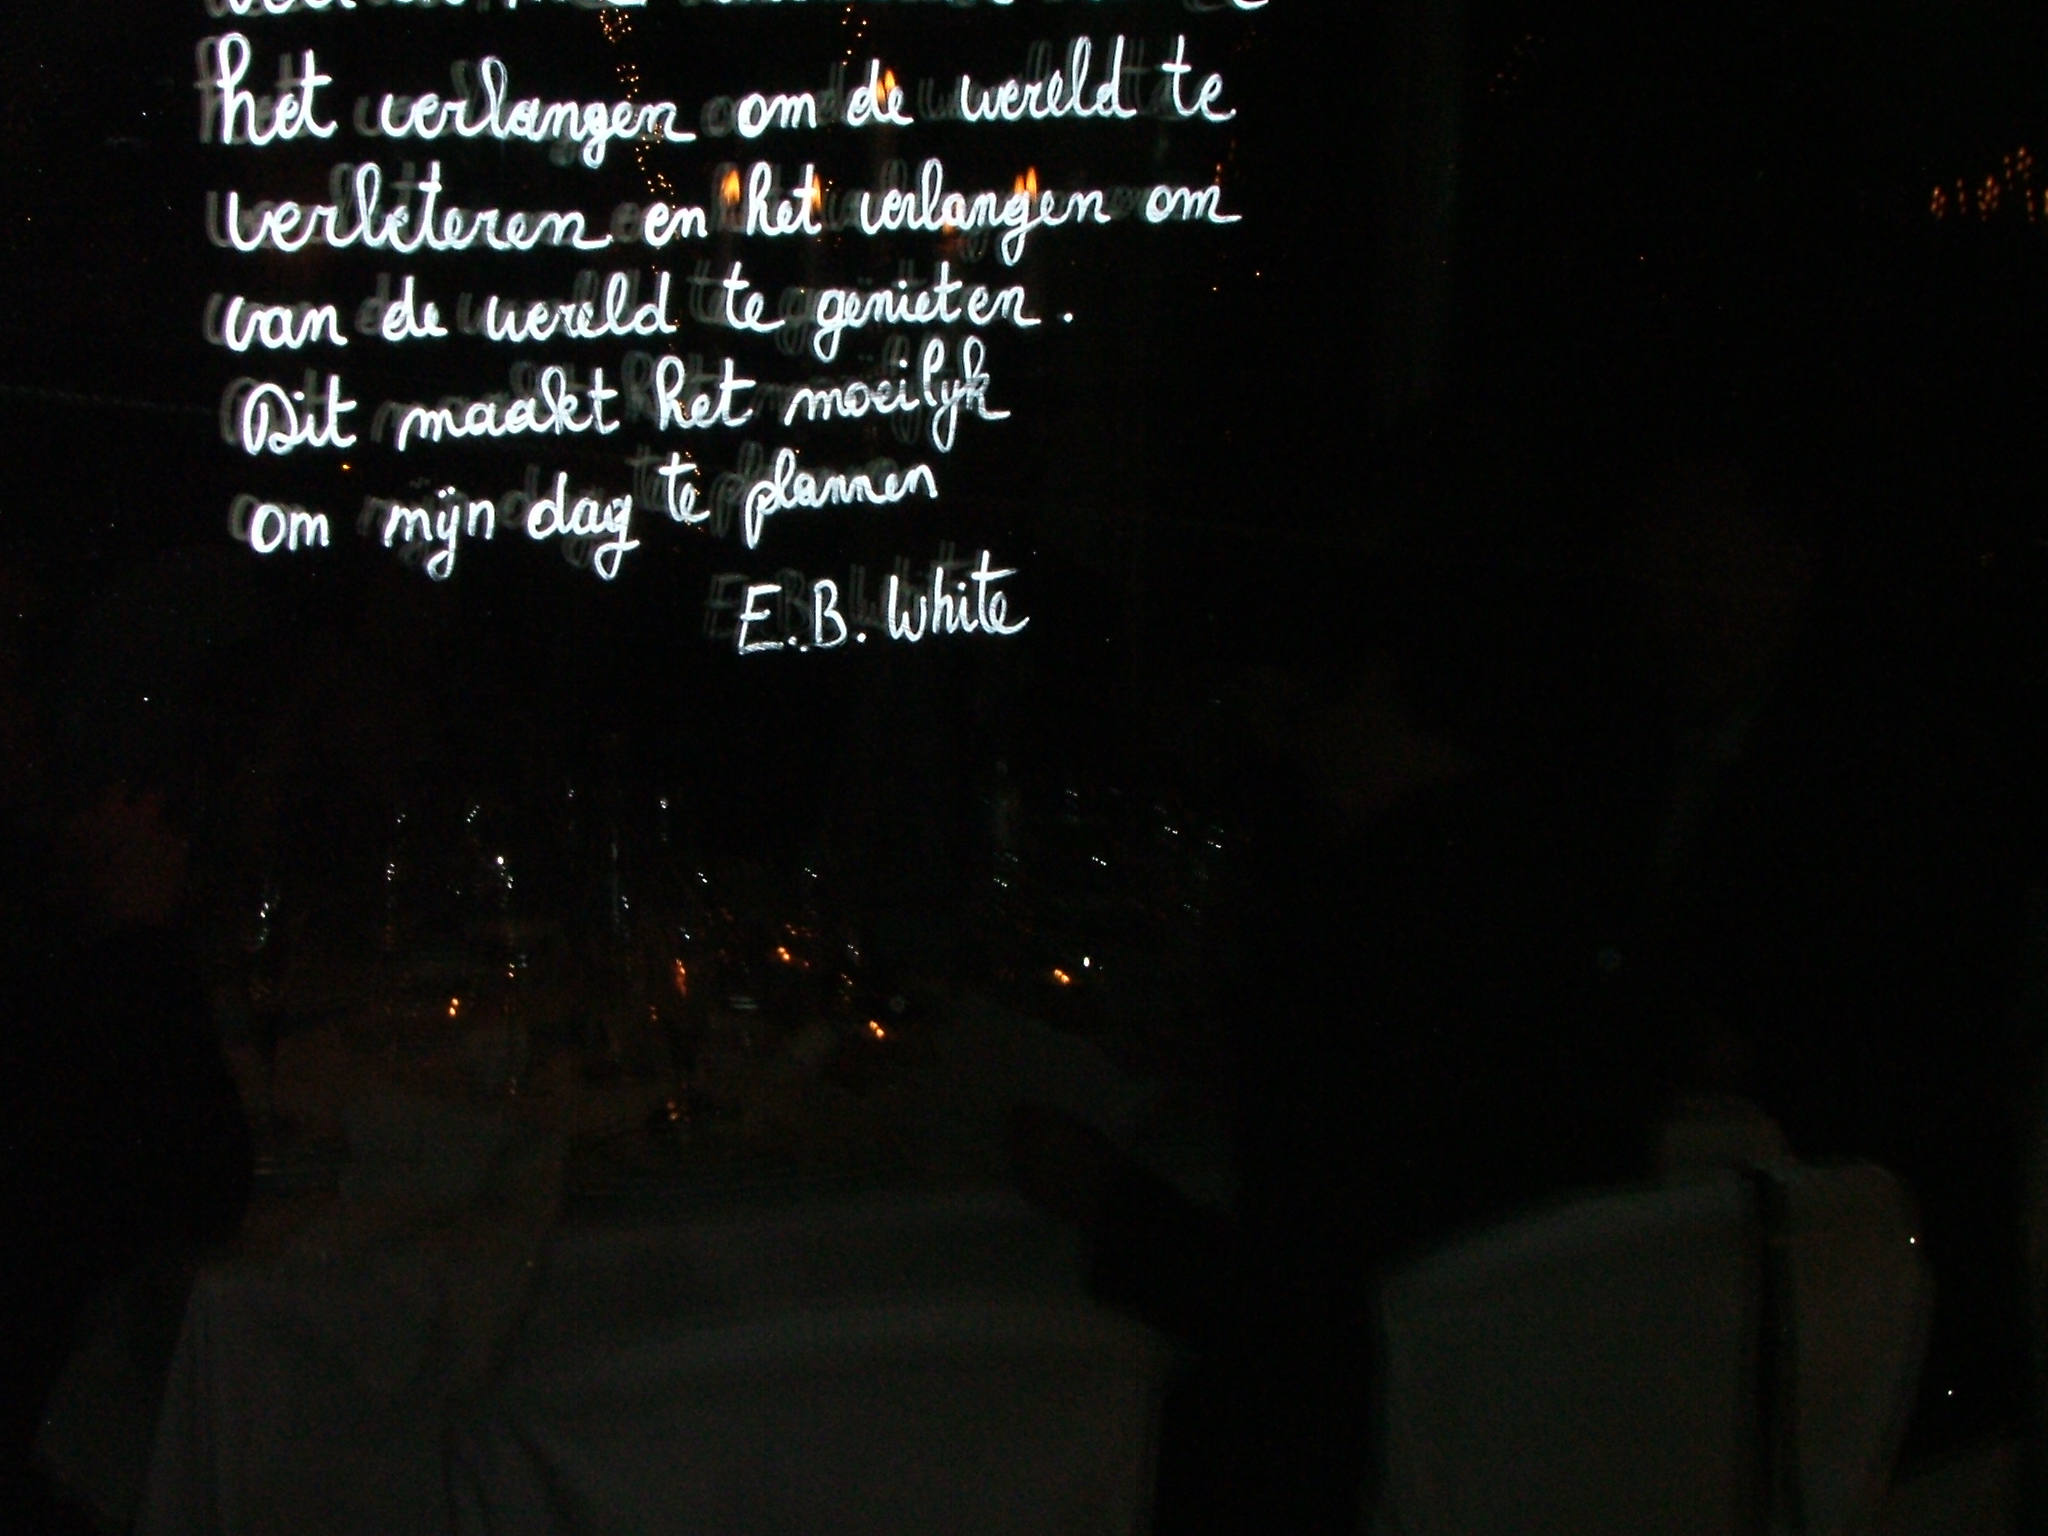 het verlangen om de wereld te
verbeteren en het verlangen om
van de wereld te genieten.
Dit maakt het moeilyk
om mijn dag te plannen
E.B. White